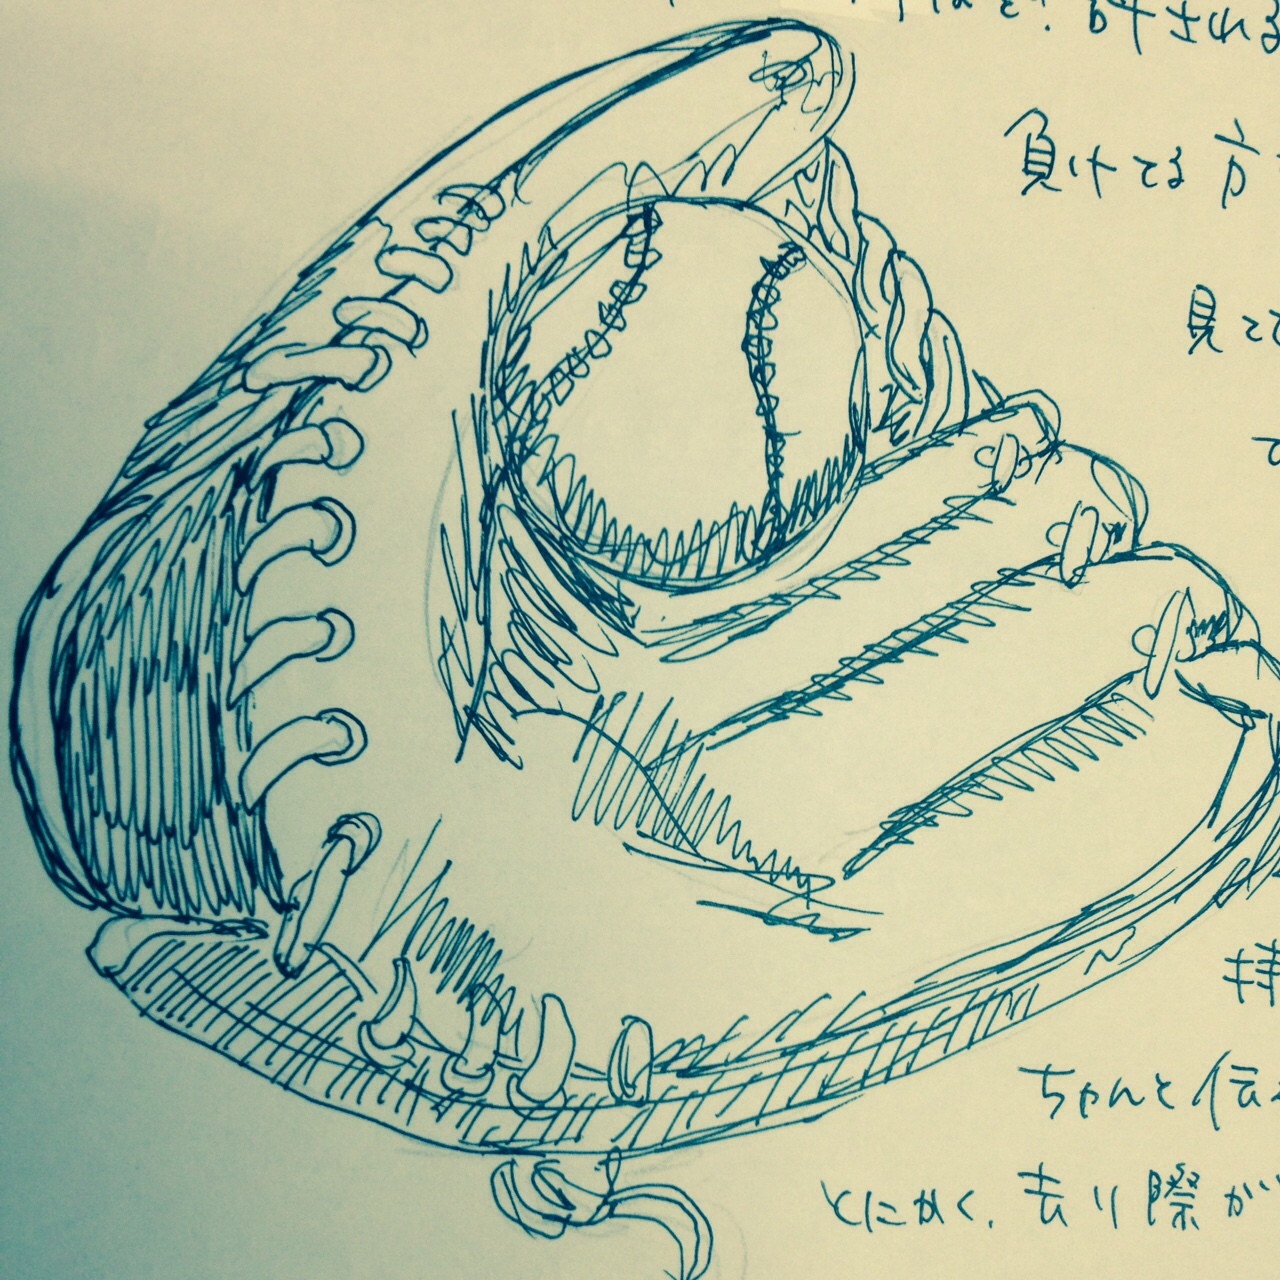 許される
負けてる方
見てて
て
持
ちゃんと伝
とにかく、去り際が